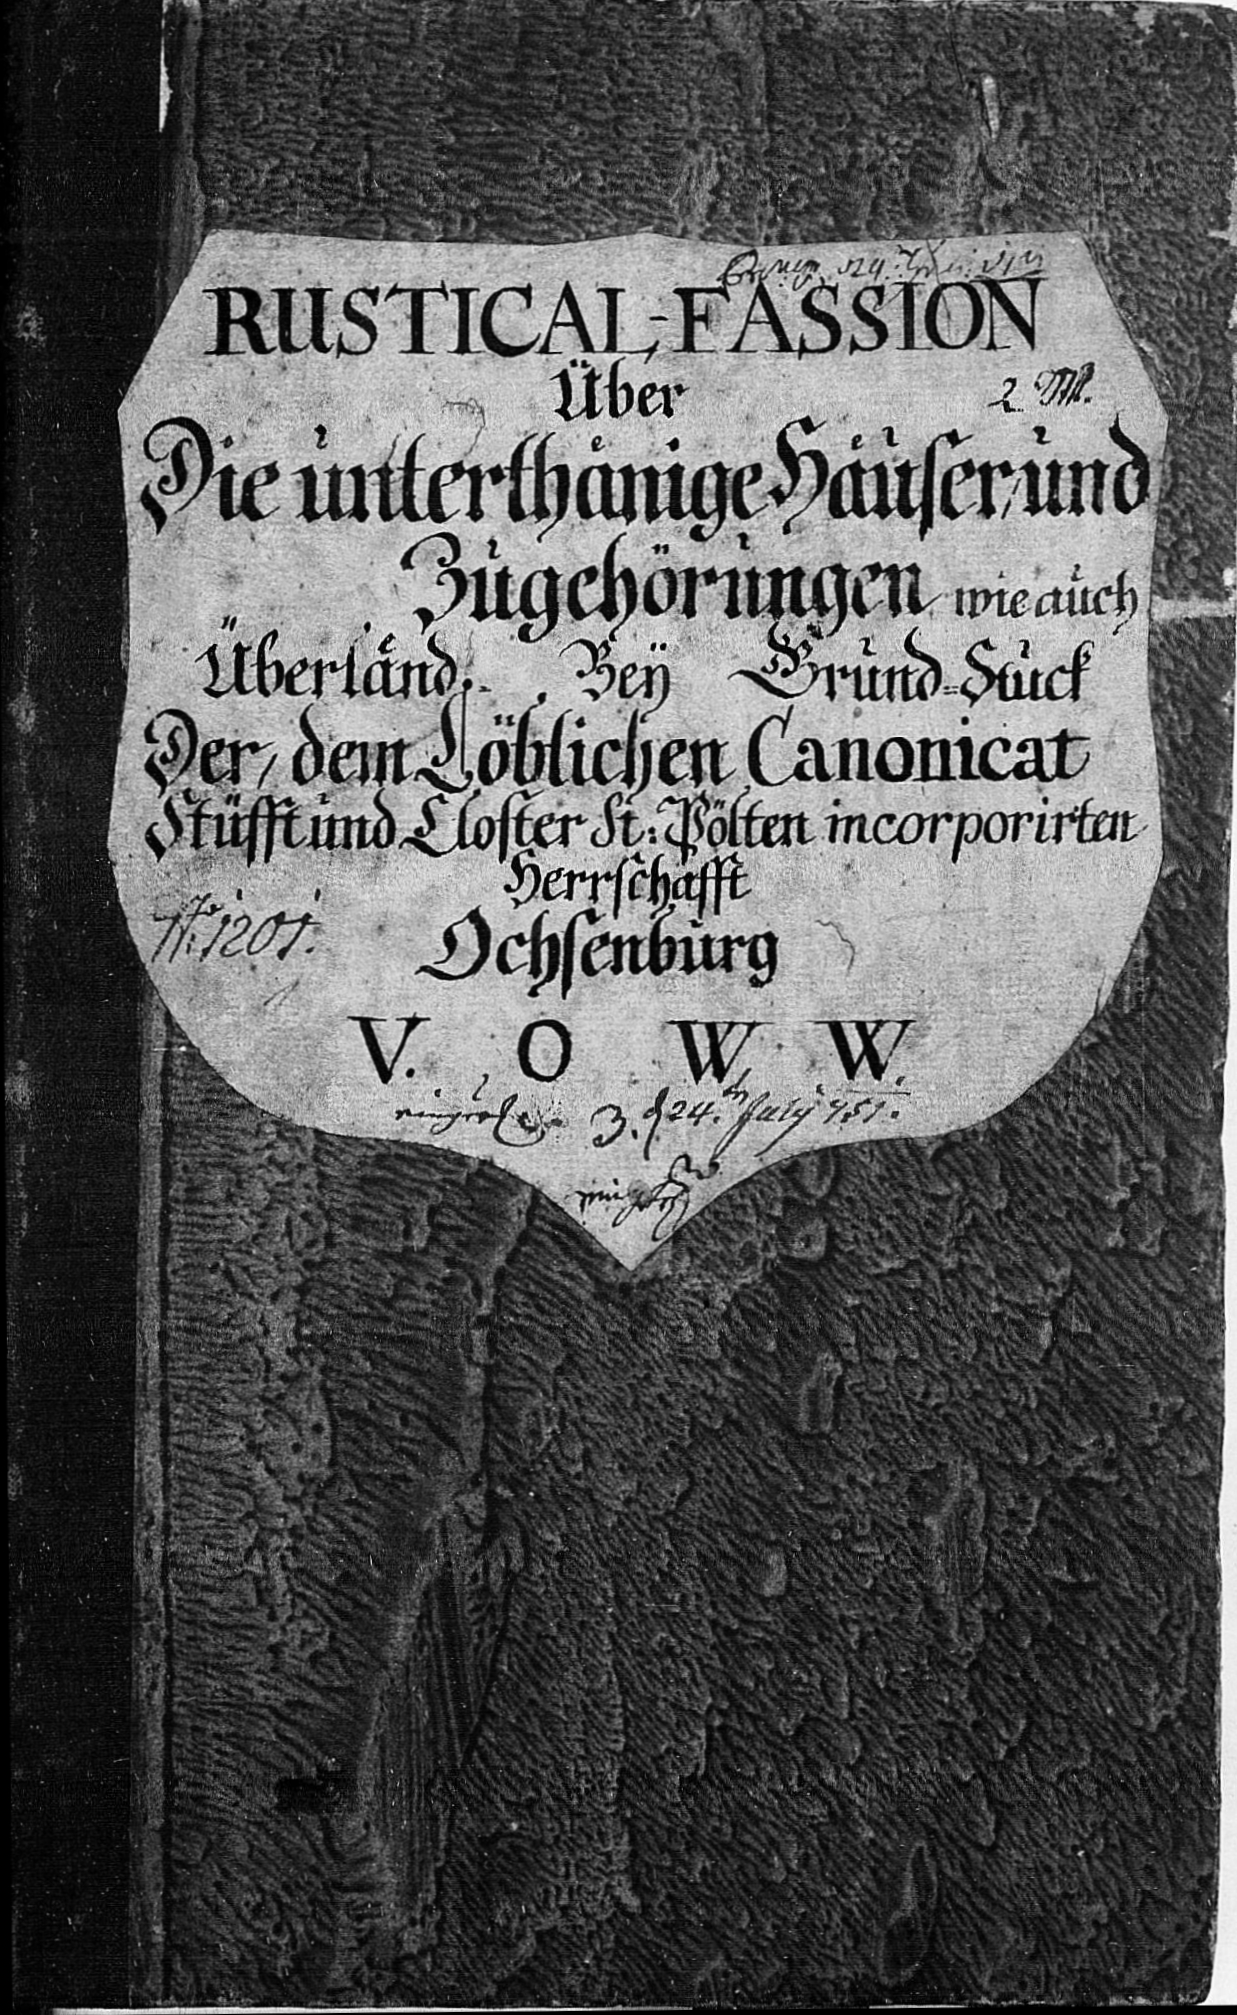 RUSTICAL-FASSION
Über
2 M.
Die unterthänige Häuser, und
Zugehörungen wie auch
Überländ. Beÿ Grund-Stuck
Der, dem Löblichen Canonicat
Stüfft und Closter St: Pölten incorporirten
Herrschafft
No: 1201.
Ochsenburg
V. O W W.
3. 24. July 751.